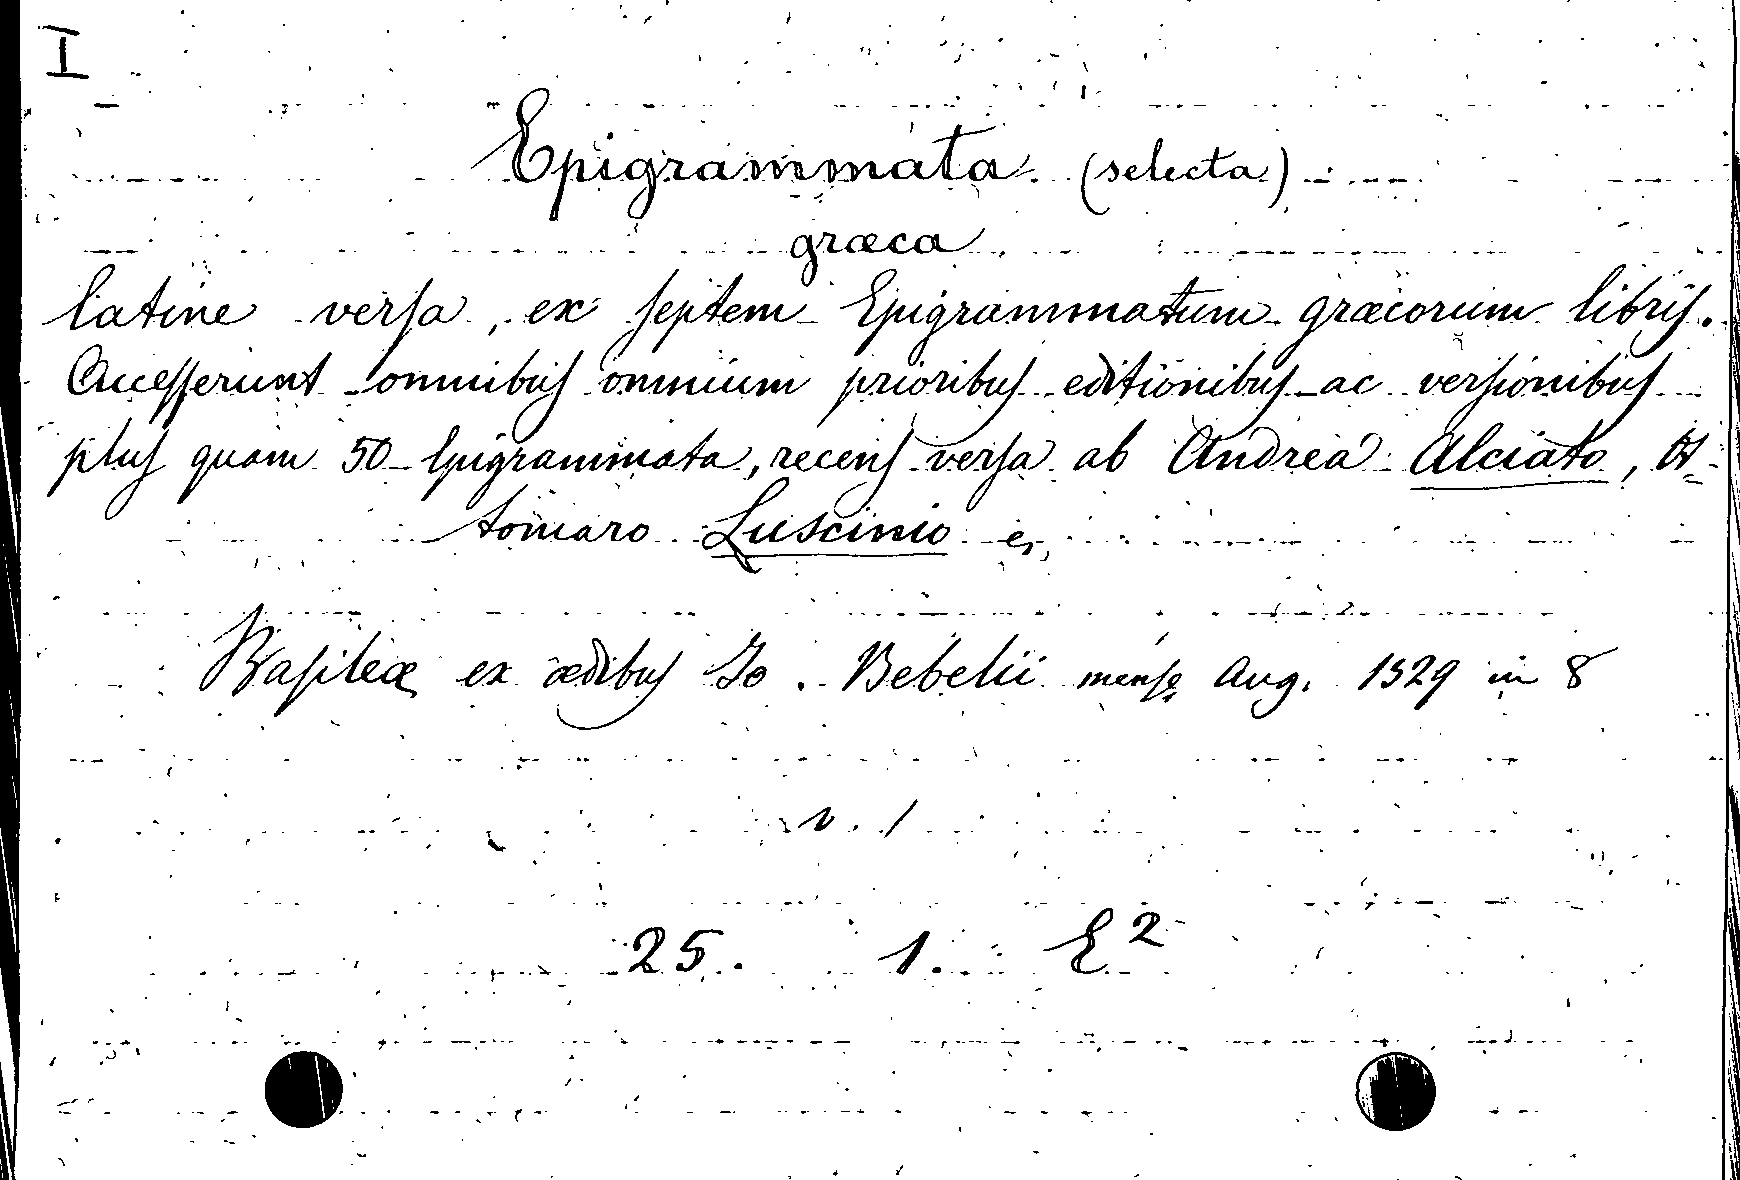 I
Epigrammata (selecta)
græca
latine versa, ex septem Epigrammatum græcorum libris.
Accesserunt omnibus omnium prioribus editionibus ac versionibus
plus quam 50 Epigrammata, recens versa ab Andrea Alciato, Ot-
tomaro Luscinio
Basileæ ex ædibus Jo. Bebelii mense Aug. 1529 in 8
v. 1
25. 1. E²